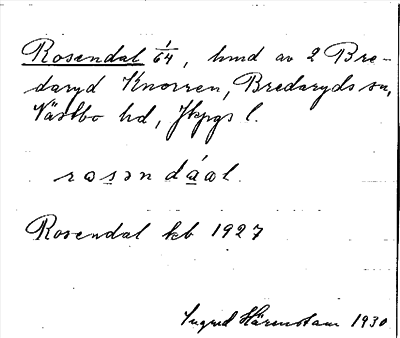 Rosendal 1/64, hmd av 2 Bre-
daryd Knorren, Bredaryds sn,
Västbo hd, Jkpgs l.
rosəndáal.
Rosendal kb 1927
Ingrid Härenstam 1930